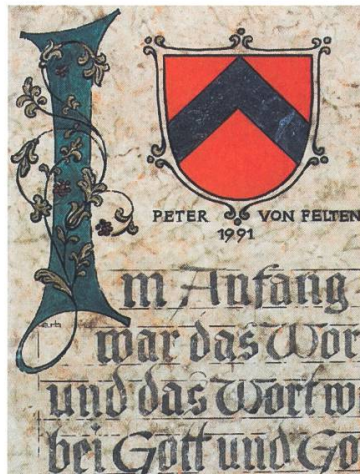 PETER VON FELTEN
1991
Im Anfang
war das Wor
und das Wort w
bei Gott und Go